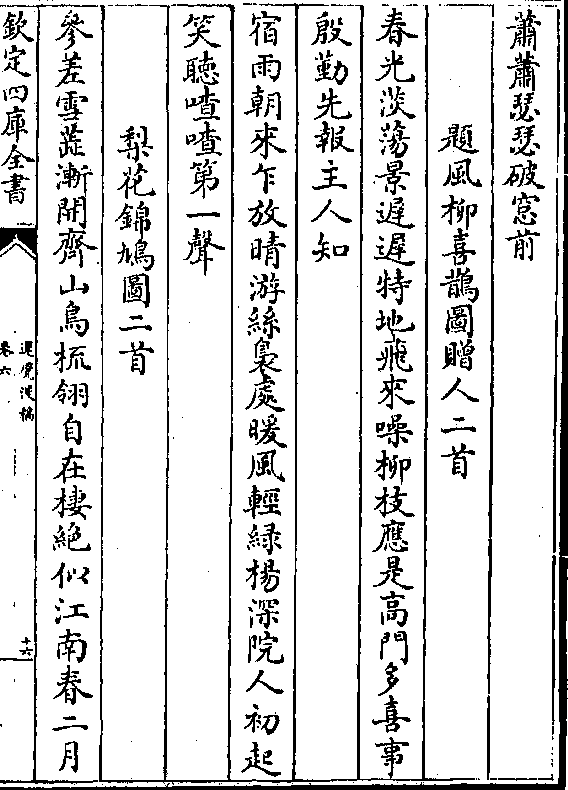 蕭蕭瑟瑟破窓前
題風柳喜鵲圖贈人二首
春光淡蕩景遲遲特地飛來噪柳枝應是高門多喜事
殷勤先報主人知
宿雨朝來乍放晴游絲裊處暖風輕緑楊深院人初起
笑聽喳喳第一聲
梨花錦鳩圖二首
參差雪蕋漸開齊山鳥梳翎自在棲絶似江南春二月
欽定四庫全書
卷六
十六